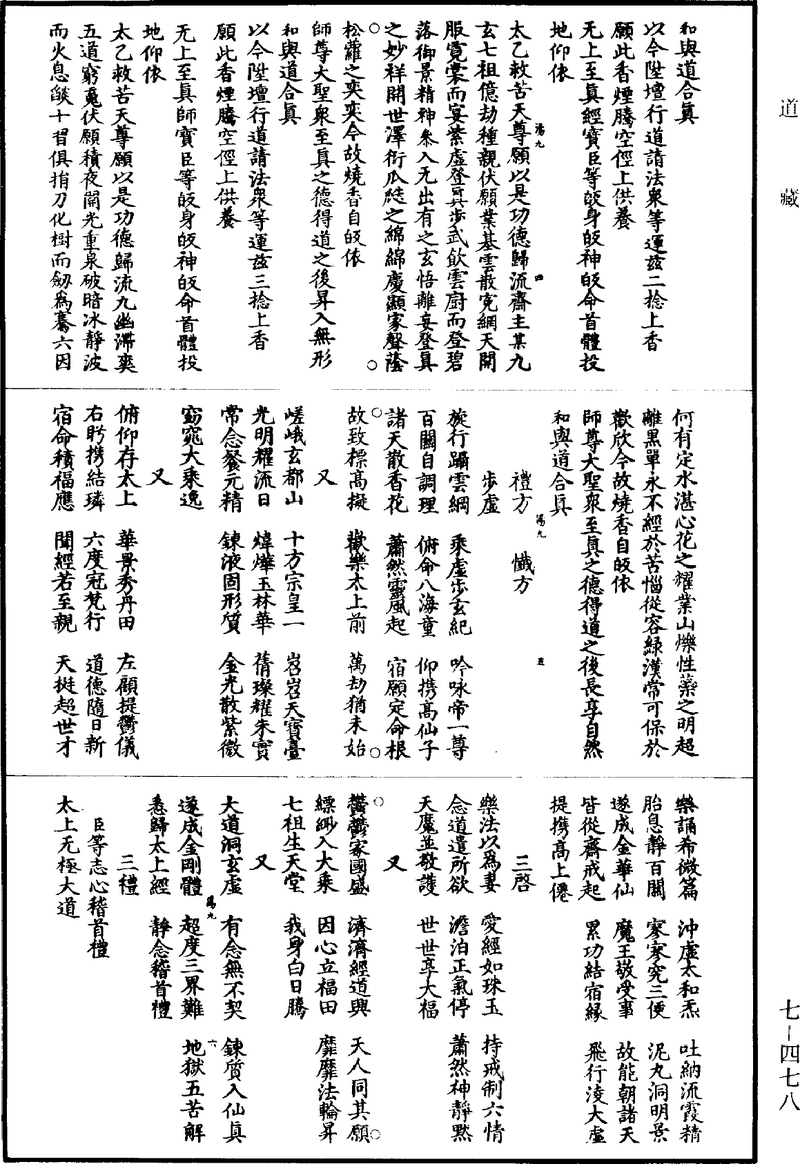 道藏
和與道合眞
以今陞壇行道請法衆等運玆二捻上香
願此香煙騰空徑上供養
无上至眞經寶臣等皈身皈神皈命首體投
地仰依
太乙救苦天尊願以是功德歸流齋主某九
湯九 四
玄七祖億劫種親伏願業基雲散寃網天開
服霓裳而宴紫虛登眞步武飲雲廚而登碧
落御景精神叅入无出有之玄悟離妄登眞
之妙祥開世澤衍瓜綿之綿綿慶顯家聲蔭
松蘿之奕奕今故燒香自皈依
師尊大聖衆至眞之德得道之後昇入無形
和與道合眞
以今陞壇行道請法衆等運玆三捻上香
願此香煙騰空徑上供養
无上至眞師寶臣等皈身皈神皈命首體投
地仰依
太乙救苦天尊願以是功德歸流九幽滯爽
五道窮䰟伏願積夜開光重泉破暗冰靜波
而火息燄十習俱捐刀化樹而劒爲騫六因
何有定水湛心花之耀業山爍性藥之明超
離黑單永不經於苦惱從容綠漢常可保於
歡欣今故燒香自皈依
師尊大聖衆至眞之德得道之後長享自然
和與道合眞
禮方 懺方
湯九 五
步虛
旋行躡雲綱 乘虛步玄紀 吟咏帝一尊
百關自調理 俯命八海童 仰携高仙子
諸天散香花 蕭然靈風起 宿願定命根
故致標高擬 歡樂太上前 萬劫猶未始
又
嵯峨玄都山 十方宗皇一 岧岧天寶臺
光明耀流日 煒燁玉林華 蒨璨耀朱實
常念餐元精 鍊液固形質 金光散紫微
窈窕大乘逸
又
俯仰存太上 華景秀丹田 左顧提鬱儀
右眄携結璘 六度冠梵行 道德隨日新
宿命積福應 聞經若至親 天挺超世才
樂誦希微篇 沖虛太和炁 吐納流霞精
胎息靜百關 寥寥究三便 泥丸洞明景
遂成金華仙 魔王敬受事 故能朝諸天
皆從齋戒起 累功結宿緣 飛行淩大虛
提携高上僊
三啓
樂法以爲妻 愛經如珠玉 持戒制六情
念道遣所欲 澹泊正氣停 蕭然神靜默
天魔並敬護 世世享大福
又
鬱鬱家國盛 濟濟經道興 天人同其願
縹緲入大乘 因心立福田 靡靡法輪昇
七祖生天堂 我身白日騰
又
大道洞玄虛 有念無不契 鍊質入仙眞
遂成金剛體 超度三界難 地獄五苦解
湯九 六
悉歸太上經 靜念稽首禮
三禮
臣等志心稽首禮
太上无極大道
七–四七八